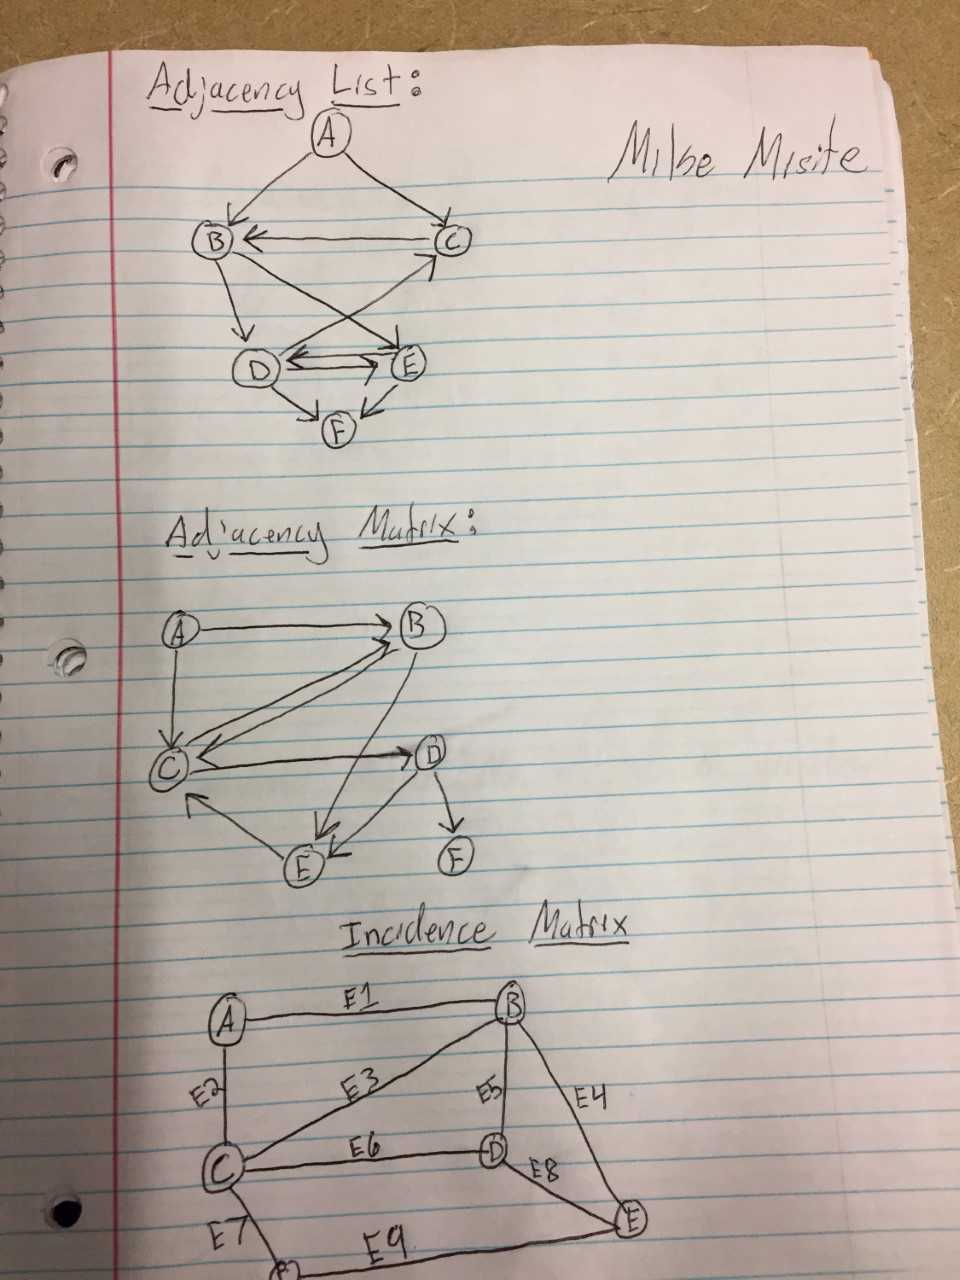 Adjacency List:
A
Mike Misite
B
C
D
E
F
Adjacency Matrix:
A
B
C
D
E
F
Incidence Matrix
A
E1
B
E2
E3
E5
E4
C
E6
D
E8
E7
E9
E